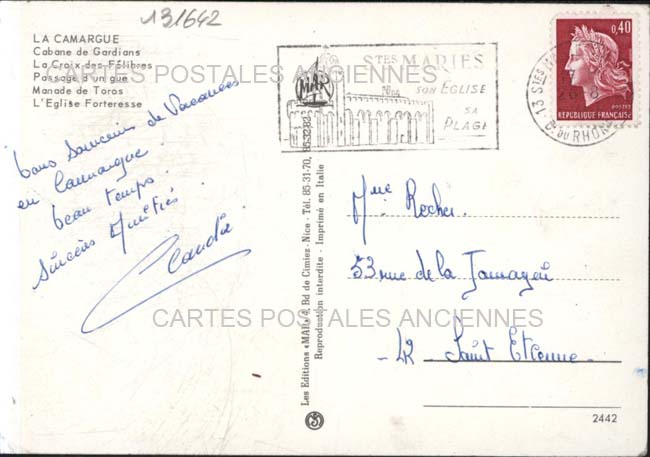 131642
LA CAMARGUE
Cabane de Gardians
La Croix des Félibres
Passage d'un gué
Manade de Toros
L'Eglise Forteresse
CARTES POSTALES ANCIENNES
STES MARIES
SON EGLISE
SA
PLAGE
MAR
0,40
POSTES
REPUBLIQUE FRANÇAISE
13 STES
B. DU RHONE
Bons souvenirs de Vacances
en Camargue.
beau temps.
Sincères Amitiés.
Claudie
Les Editions «MAR» 4, Bd de Cimiez - Nice - Tél. 85-31-70, 85-32-82
Reproduction interdite - Imprimé en Italie
Mme Rocher
53 rue de la
42 Saint Etienne
CARTES POSTALES ANCIENNES
2442